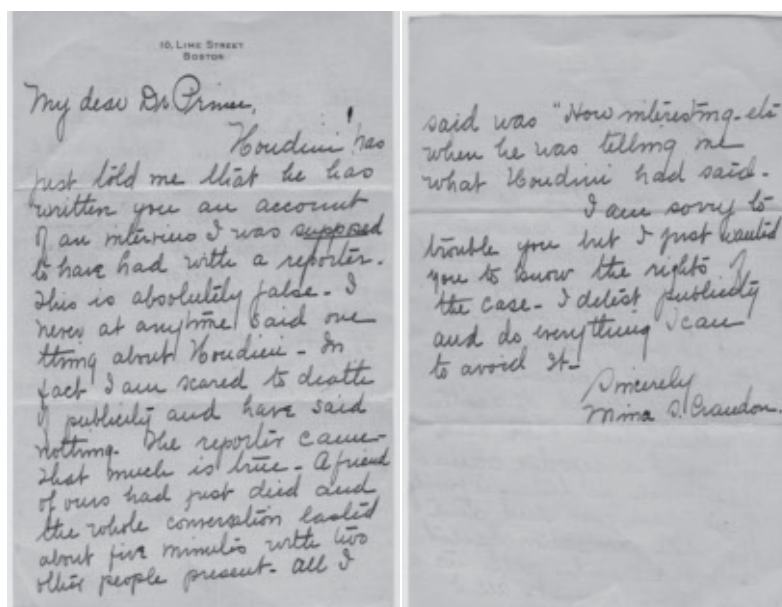 10, LIME STREET
BOSTON
My dear Dr Prince,
Houdini has
just told me that he has
written you an account
of an interview I was supposed
to have had with a reporter.
This is absolutely false - I
never at anytime said one
thing about Houdini - In
fact I am scared to death
of publicity and have said
nothing. The reporter came -
that much is true - A friend
of ours had just died and
the whole conversation lasted
about five minutes with two
other people present - all I
said was "How interesting - etc
when he was telling me
what Houdini had said -
I am sorry to
trouble you but I just wanted
you to know the rights of
the case - I detest publicity
and do everything I can
to avoid it -
Sincerely
Mina S. Crandon.